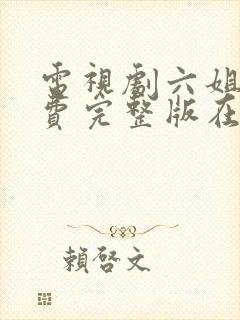 電視劇六姐
費完整版在
賴啓文